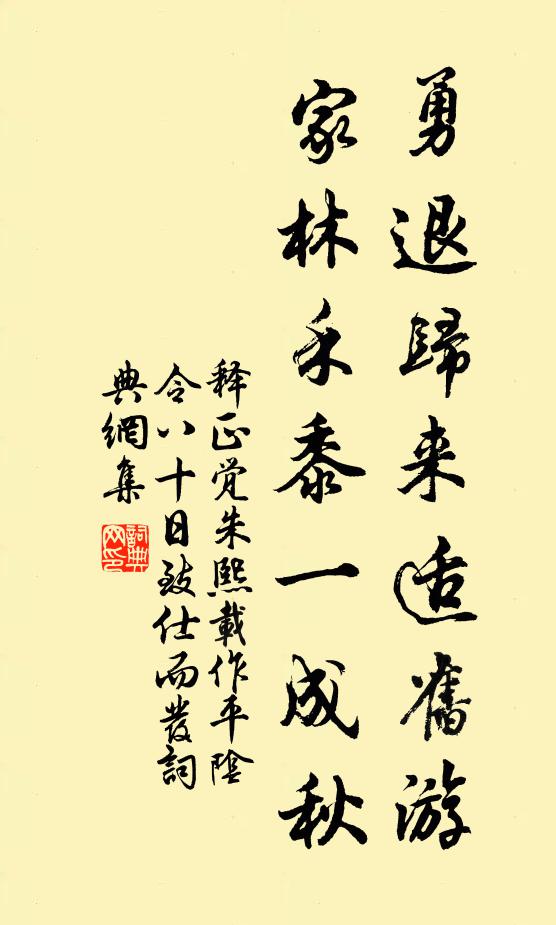 勇退歸来适舊游
家林禾黍一成秋
释正觉朱熙載作平陰
令八十日致仕而發詞
典網集
詞典网印